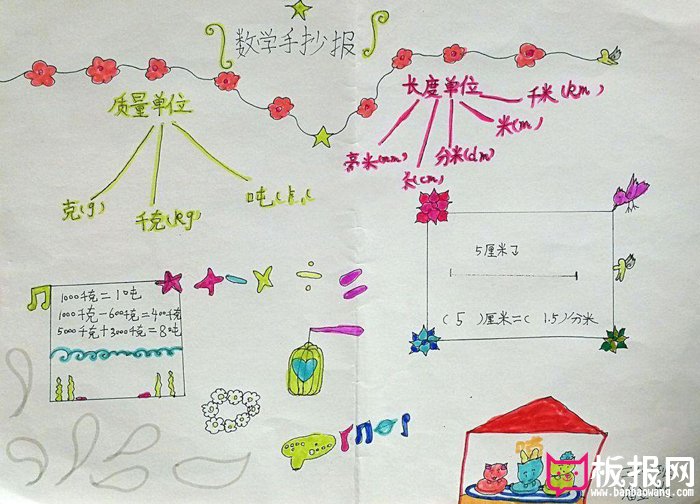 数学手抄报
质量单位
克(g)
千克(kg)
吨(
长度单位
千米(km)
米(m)
分米(dm)
米(cm)
米(mm)
1000千克=10吨
1000千克-600千克=400千克
5000千克+3000千克=80吨
5厘米
( 5 )厘米=( 1.5)分米
板报网
www.banbaowang.com